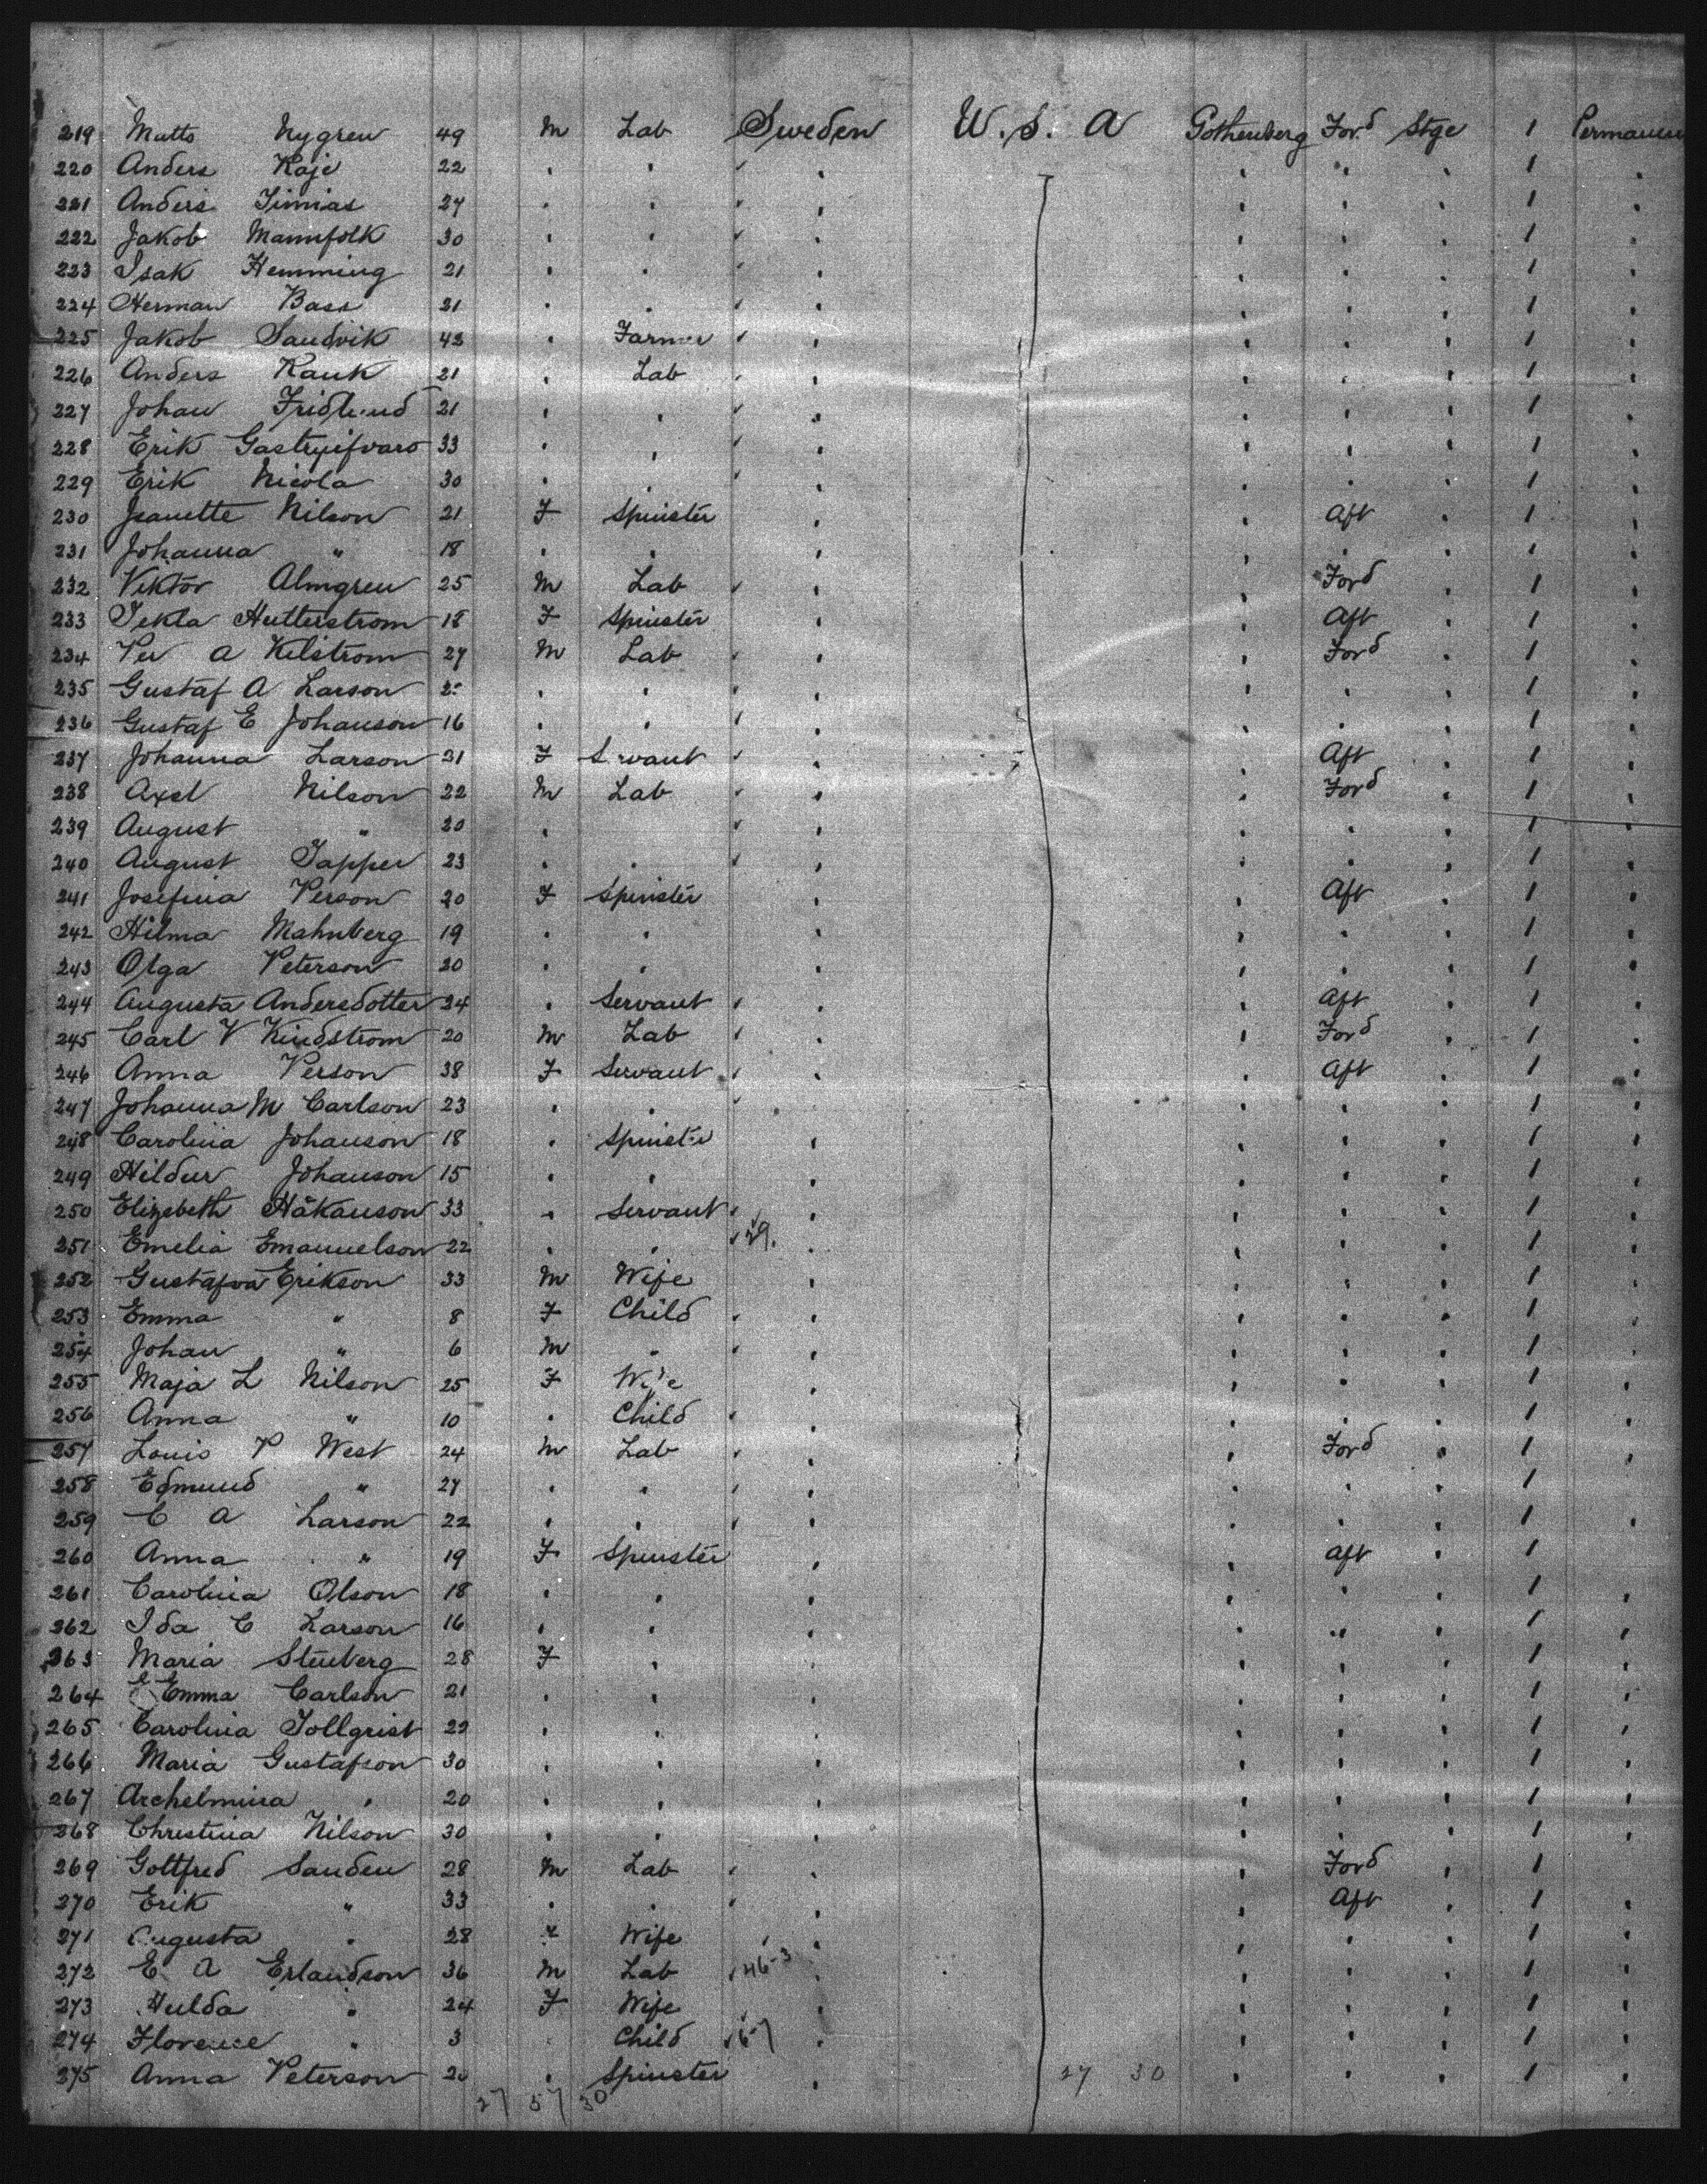 219 Matts Nygren 49 M Lab Sweden U.S.A Gothenberg Ford Stge 1
220 Anders Kaje 22 " " " " " " " 1 "
221 Anders 27 " " " " " " " 1 "
222 Jakob Mannfolk 30 " " " " " " " 1 "
223 Isak Hemming 21 " " " " " " " 1 "
224 Herman Bass 21 " " " " " " " 1 "
225 Jakob Sandvik 43 " Farmer " " " " " 1 "
226 Anders Kauk 21 " Lab " " " " " 1 "
227 Johan Fridlund 21 " " " " " " " 1 "
228 Erik 33 " " " " " " " 1 "
229 Erik Nicola 30 " " " " " " " 1 "
230 Jeanette Nilson 21 F Spinster " " Aft " 1 "
231 Johanna " 18 " " " " " " 1 "
232 Viktor Almgren 25 M Lab " " Ford " 1 "
233 Tekla Hutterstrom 18 F Spinster " " Aft " 1 "
234 Per A Kelstrom 27 M Lab " " Ford " 1 "
235 Gustaf A Larson " " " " " " 1 "
236 Gustaf E Johanson 16 " " " " " " 1 "
237 Johanna Larson 21 F Servant " " Aft " 1 "
238 Axel Nilson 22 M Lab " " Ford " 1 "
239 August " 20 " " " " " 1 "
240 August Tapper 23 " " " " " " 1 "
241 Josefina Person 20 F Spinster " " Aft " 1 "
242 Hilma Mahnberg 19 " " " " " " 1 "
243 Olga Peterson 20 " " " " " " 1 "
244 Augusta Andersdotter 24 " Servant " " Aft " 1 "
245 Carl V Kindstrom 20 M Lab " " Ford " 1 "
246 Anna Person 38 F Servant " " Aft " 1 "
247 Johanna M Carlson 23 " " " " " " 1 "
248 Carolina Johanson 18 " Spinster " " " " 1 "
249 Hildur Johanson 15 " " " " " " 1 "
250 Elizabeth Håkanson 33 " Servant " " " " 1 "
251 Emelia Emanuelson 22 " " 29. " " " " 1 "
252 Gustafva Erikson 33 M Wife " " " " 1 "
253 Emma " 8 F Child " " " " 1 "
254 Johan " 6 M " " " " " 1 "
255 Maja L Nilson 25 F Wife " " " " 1 "
256 Anna " 10 " Child " " " " 1 "
257 Louis P West 24 M Lab " " Ford " 1 "
258 Edmund " 27 " " " " " " 1
259 C A Larson 22 " " " " " " 1 "
260 Anna " 19 F Spinster " " Aft " 1
261 Carolina Olson 18 " " " " " 1 "
262 Ida C Larson 16 " " " " " " 1 "
263 Maria Stenberg 28 F " " " " " 1 "
264 Emma Carlson 21 " " " " " " 1 "
265 Carolina Tollqrist 22 " " " " " " 1 "
266 Maria Gustafson 30 " " " " " " 1 "
267 Archelmina " 20 " " " " " " 1 "
268 Christina Nilson 30 " " " " " " 1 "
269 Gottfred Sanden 28 M Lab " " Ford " 1
270 Erik " 33 " " " " Aft " 1 "
271 Augusta " 28 F Wife " " " " 1 "
272 E A Erlandson 36 M Lab 46-3 " " " " 1 "
273 Hulda " 24 F Wife " " " " 1 "
274 Florence " 3 Child 6-7 " " " " 1 "
275 Anna Peterson 20 " Spinster " 27 30 " " " 1 "
27 57 30